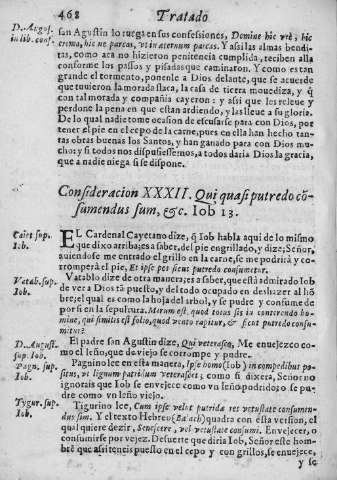 468 Tratado
D. Augus.
in lib. conf.
san Agustin lo ruega en sus confessiones, Domine hic vre, hic
crema, hic ne parcas, vt in æternum parcas. Y assi las almas bendi-
tas, como acà no hizieron penitencia cumplida, reciben alla
conforme los passos y pisadas que caminaron. Y como estan
grande el tormento, ponenle a Dios delante, que se acuerde
que tuuieron la morada flaca, la casa de tierra mouediza, y q̃
con tal morada y compañia cayeron: y asi que les relieue y
perdone la pena en que estan ardiendo, y las lleue a su gloria.
De lo qual nadie tome ocasion de escusarse para con Dios, por
tener el pie en el cepo de la carne, pues en ella han hecho tan-
tas obras buenas los Santos, y han ganado para con Dios mu-
cho: y si todos nos dispusiessemos, a todos daria Dios la gracia,
que a nadie niega si se dispone.
Consideracion XXXII. Qui quasi putredo cõ-
sumendus sum, &c. Iob 13.
Caiet. sup.
Iob.
EL Cardenal Cayetano dize, q̃ Iob habla aqui de lo mismo
que dixo arriba; es a saber, del pie engrillado, y dize; Señor,
auiendose me entrado el grillo en la carne, se me podrirà y co-
rromperà el pie. Et ipse pes sicut putredo consumetur.
Vatab. sup.
Iob.
Vatablo dize de otra manera; es a saber, que està admirado Iob
de ver a Dios tã puesto, y del todo ocupado en deshazer al hõ
bre; el qual es como la hoja del arbol, y se pudre y consume de
por si en la sepultura. Mirum est, quod totus sis in conterendo ho-
mine, qui similis est folio, quod vento rapitur, & sicut putredo consu-
mitur?
D. August.
sup. Iob.
El padre san Agustin dize, Qui veterasco, Me enuejezco co-
mo el leño, que de viejo se corrompe y pudre.
Pagn. sup.
Iob.
Pagnino lee en esta manera, Ipse homo (Iob) in compedibus po-
situs, vt lignum putridum veterascet; como si dixera, Señor no
ignorais que Iob se enuejece como vn leño podrido; o se pu-
dre como vn leño viejo.
Tygur. sup.
Iob.
Tigurino lee, Cum ipse velut putrida res vetustate consumen-
dus sim. Y el texto Hebreo quadra con esta version, el
qual quiere dezir, Senescere, vel vetustate consumi. Enuejecer, o
consumirse por vejez. De suerte que diria Iob, Señor este hom-
bre que assi teneis puesto en el cepo y con grillos, se enuejece,
y se